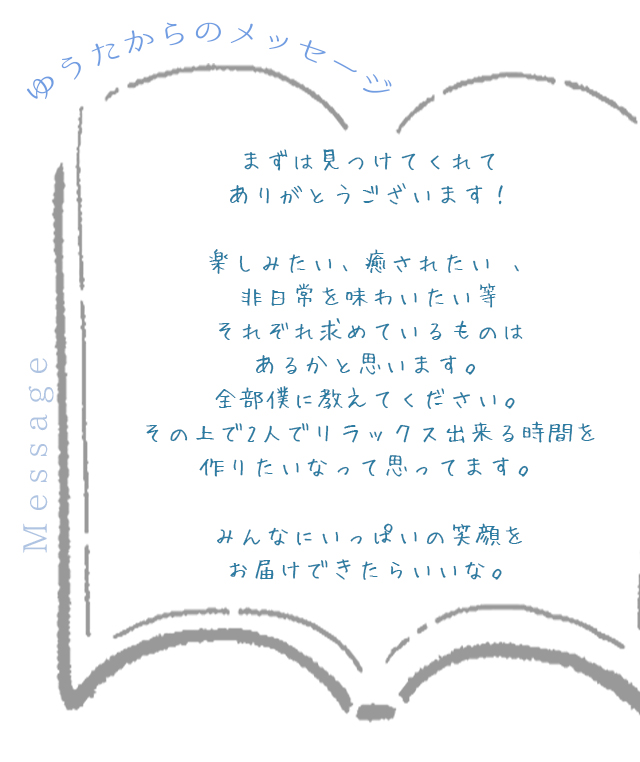 ゆうたからのメッセージ
Message
まずは見つけてくれて
ありがとうございます!
楽しみたい、癒されたい 、
非日常を味わいたい等
それぞれ求めているものは
あるかと思います。
全部僕に教えてください。
その上で2人でリラックス出来る時間を
作りたいなって思ってます。
みんなにいっぱいの笑顔を
お届けできたらいいな。